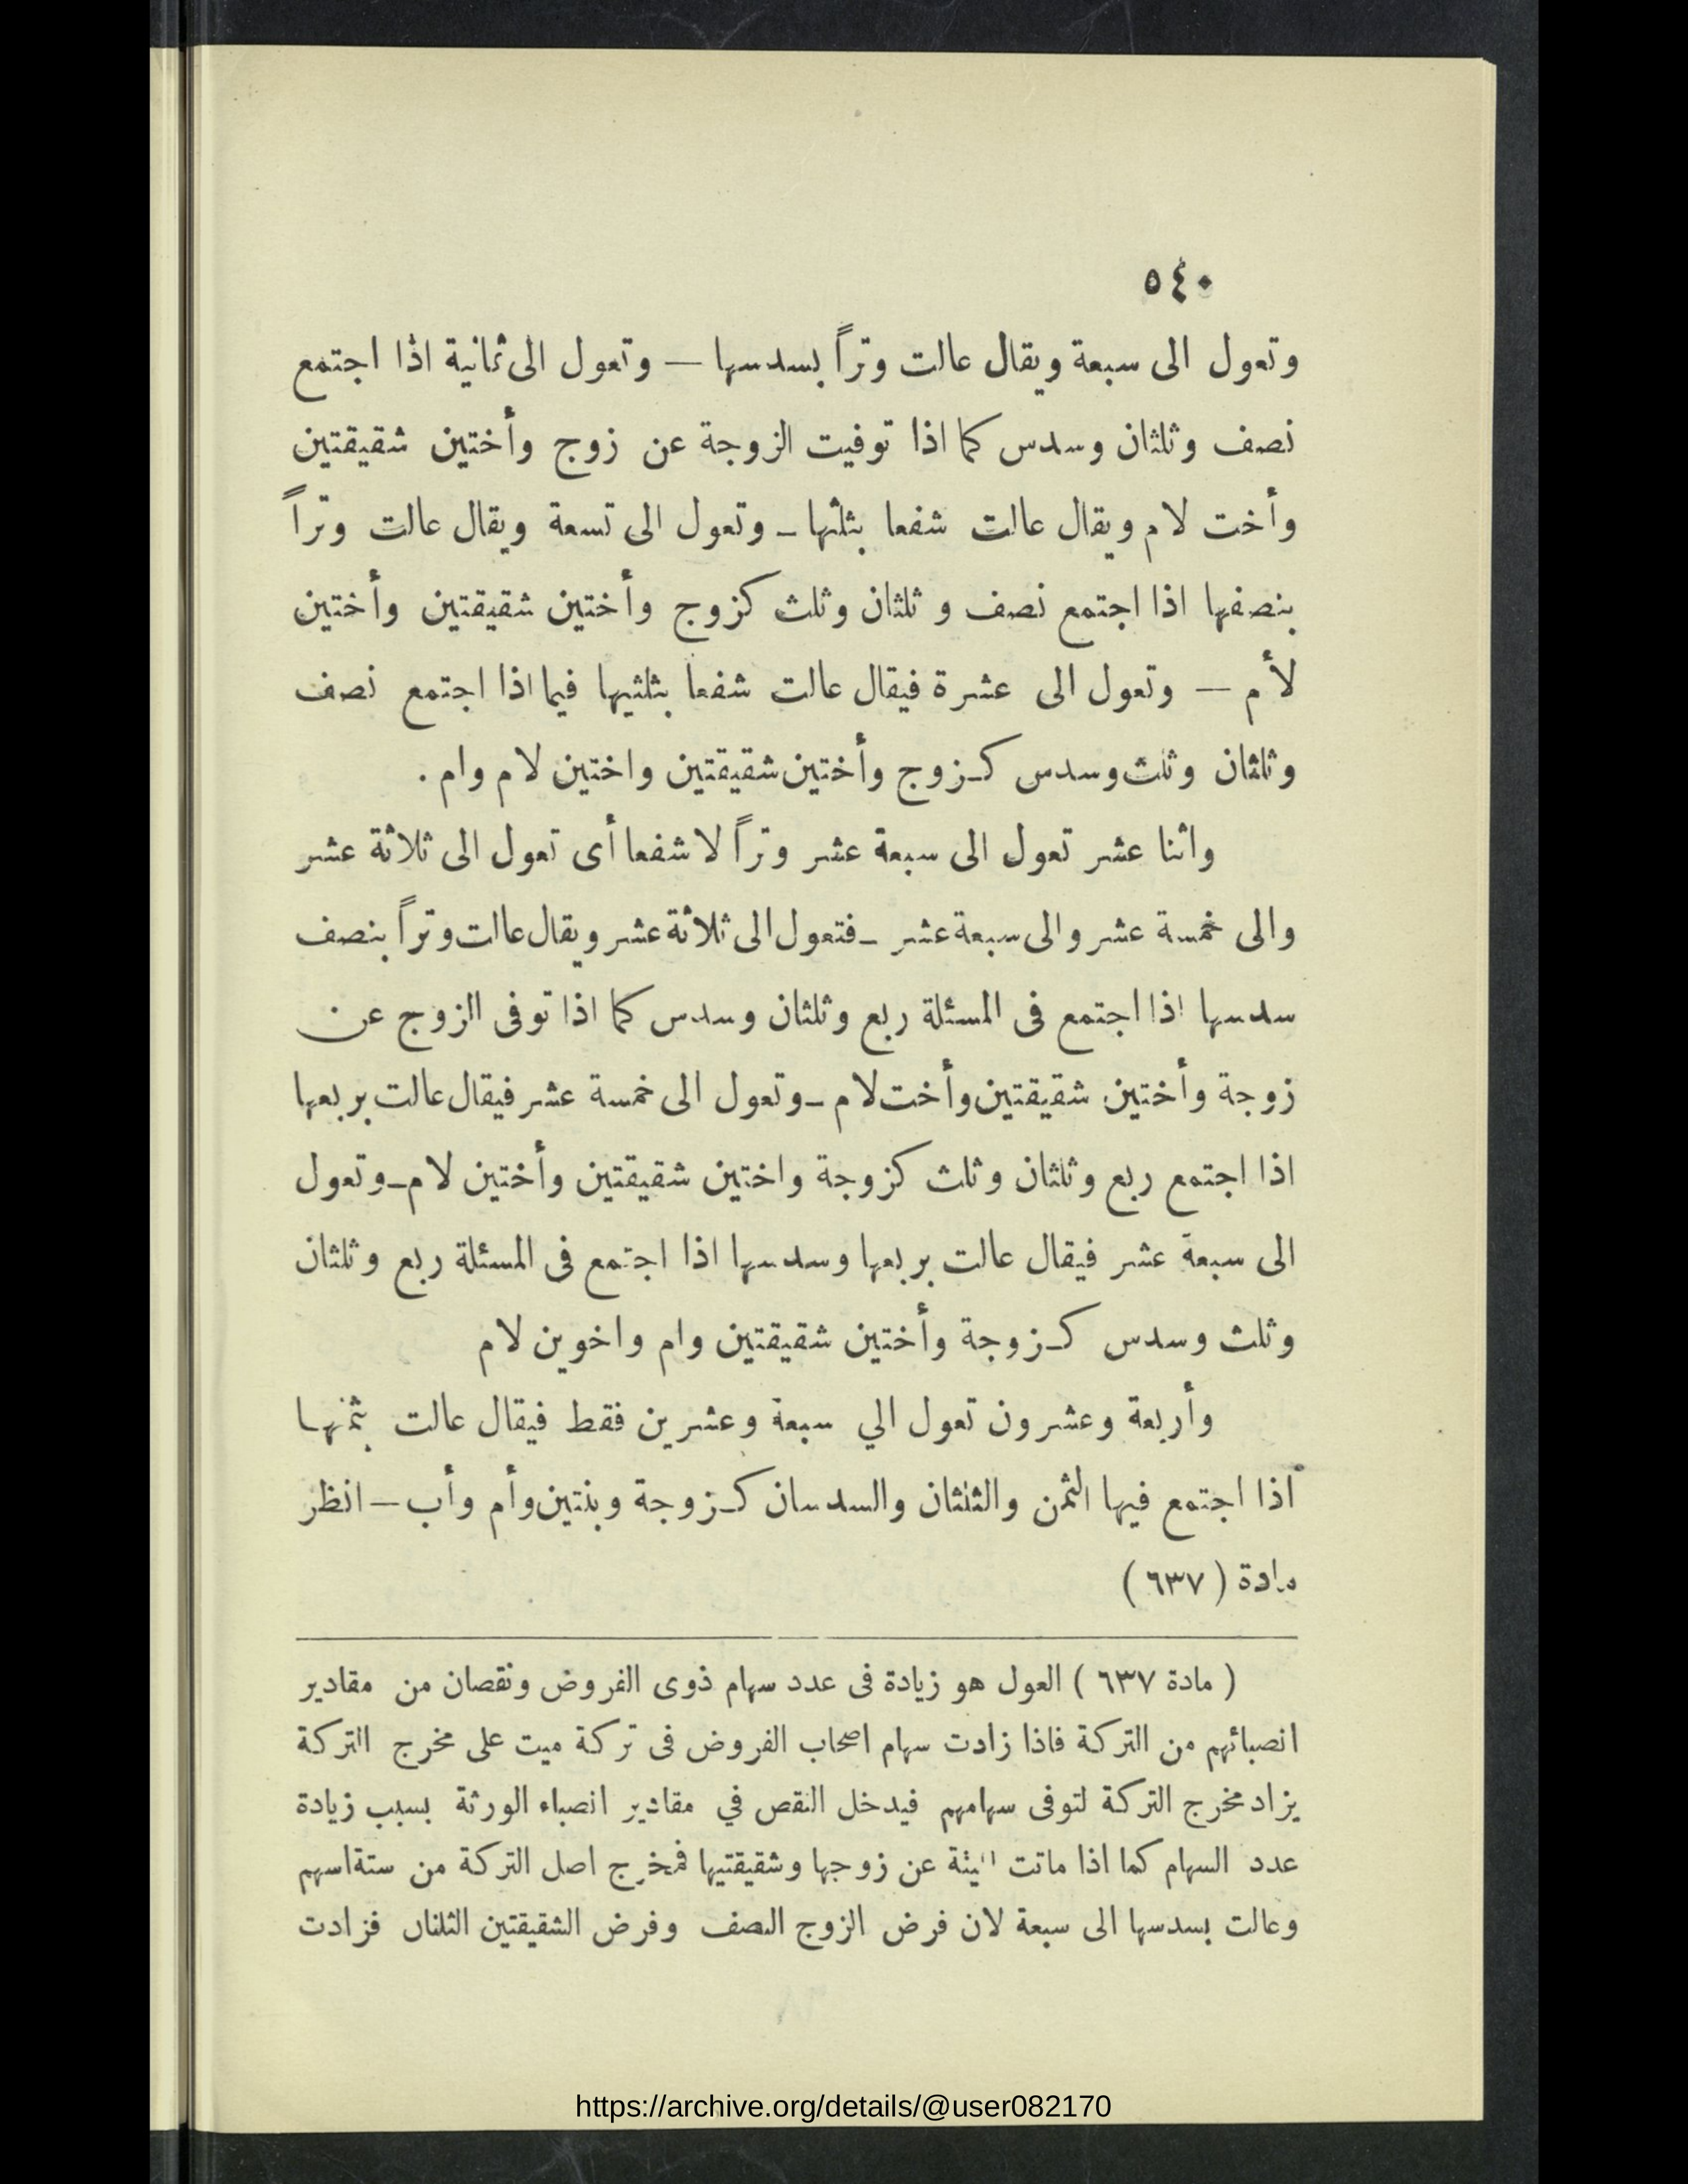 ٥٤٠
وتعول الى سبعة ويقال عالت وتراً بسدسها — وتعول الى ثمانية اذا اجتمع
نصف وثلثان وسدس كما اذا توفيت الزوجة عن زوج وأختين شقيقتين
وأخت لام ويقال عالت شفعا بثلثها ـ وتعول الى تسعة ويقال عالت وتراً
بنصفها اذا اجتمع نصف و ثلثان وثلث كزوج وأختين شقيقتين وأختين
لأم — وتعول الى عشرة فيقال عالت شفعا بثلثيها فيما اذا اجتمع نصف
وثلثان وثلث وسدس كـزوج وأختين شقيقتين واختين لام وام .
واثنا عشر تعول الى سبعة عشر وتراً لا شفعا أى تعول الى ثلاثة عشر
والى خمسة عشر والى سبعة عشر ـ فتعول الى ثلاثة عشر ويقال عالت وتراً بنصف
سدسها اذا اجتمع فى المسئلة ربع وثلثان وسدس كما اذا توفى الزوج عن
زوجة وأختين شقيقتين وأخت لام ـ وتعول الى خمسة عشر فيقال عالت بربعها
اذا اجتمع ربع وثلثان وثلث كزوجة واختين شقيقتين وأختين لام ـ وتعول
الى سبعة عشر فيقال عالت بربعها وسدسها اذا اجتمع فى المسئلة ربع وثلثان
وثلث وسدس كـزوجة وأختين شقيقتين وام واخوين لام
وأربعة وعشرون تعول الي سبعة وعشرين فقط فيقال عالت بثمنها
اذا اجتمع فيها الثمن والثلثان والسدسان كـزوجة وبنتين وأم وأب — انظر
مادة ( ٦٣٧ )
( مادة ٦٣٧ ) العول هو زيادة فى عدد سهام ذوى الفروض ونقصان من مقادير
انصبائهم من التركة فاذا زادت سهام اصحاب الفروض فى تركة ميت على مخرج التركة
يزاد مخرج التركة لتوفى سهامهم فيدخل النقص في مقادير انصباء الورثة بسبب زيادة
عدد السهام كما اذا ماتت عن زوجها وشقيقتيها فمخرج اصل التركة من ستة اسهم
وعالت بسدسها الى سبعة لان فرض الزوج النصف وفرض الشقيقتين الثلثان فزادت
https://archive.org/details/@user082170